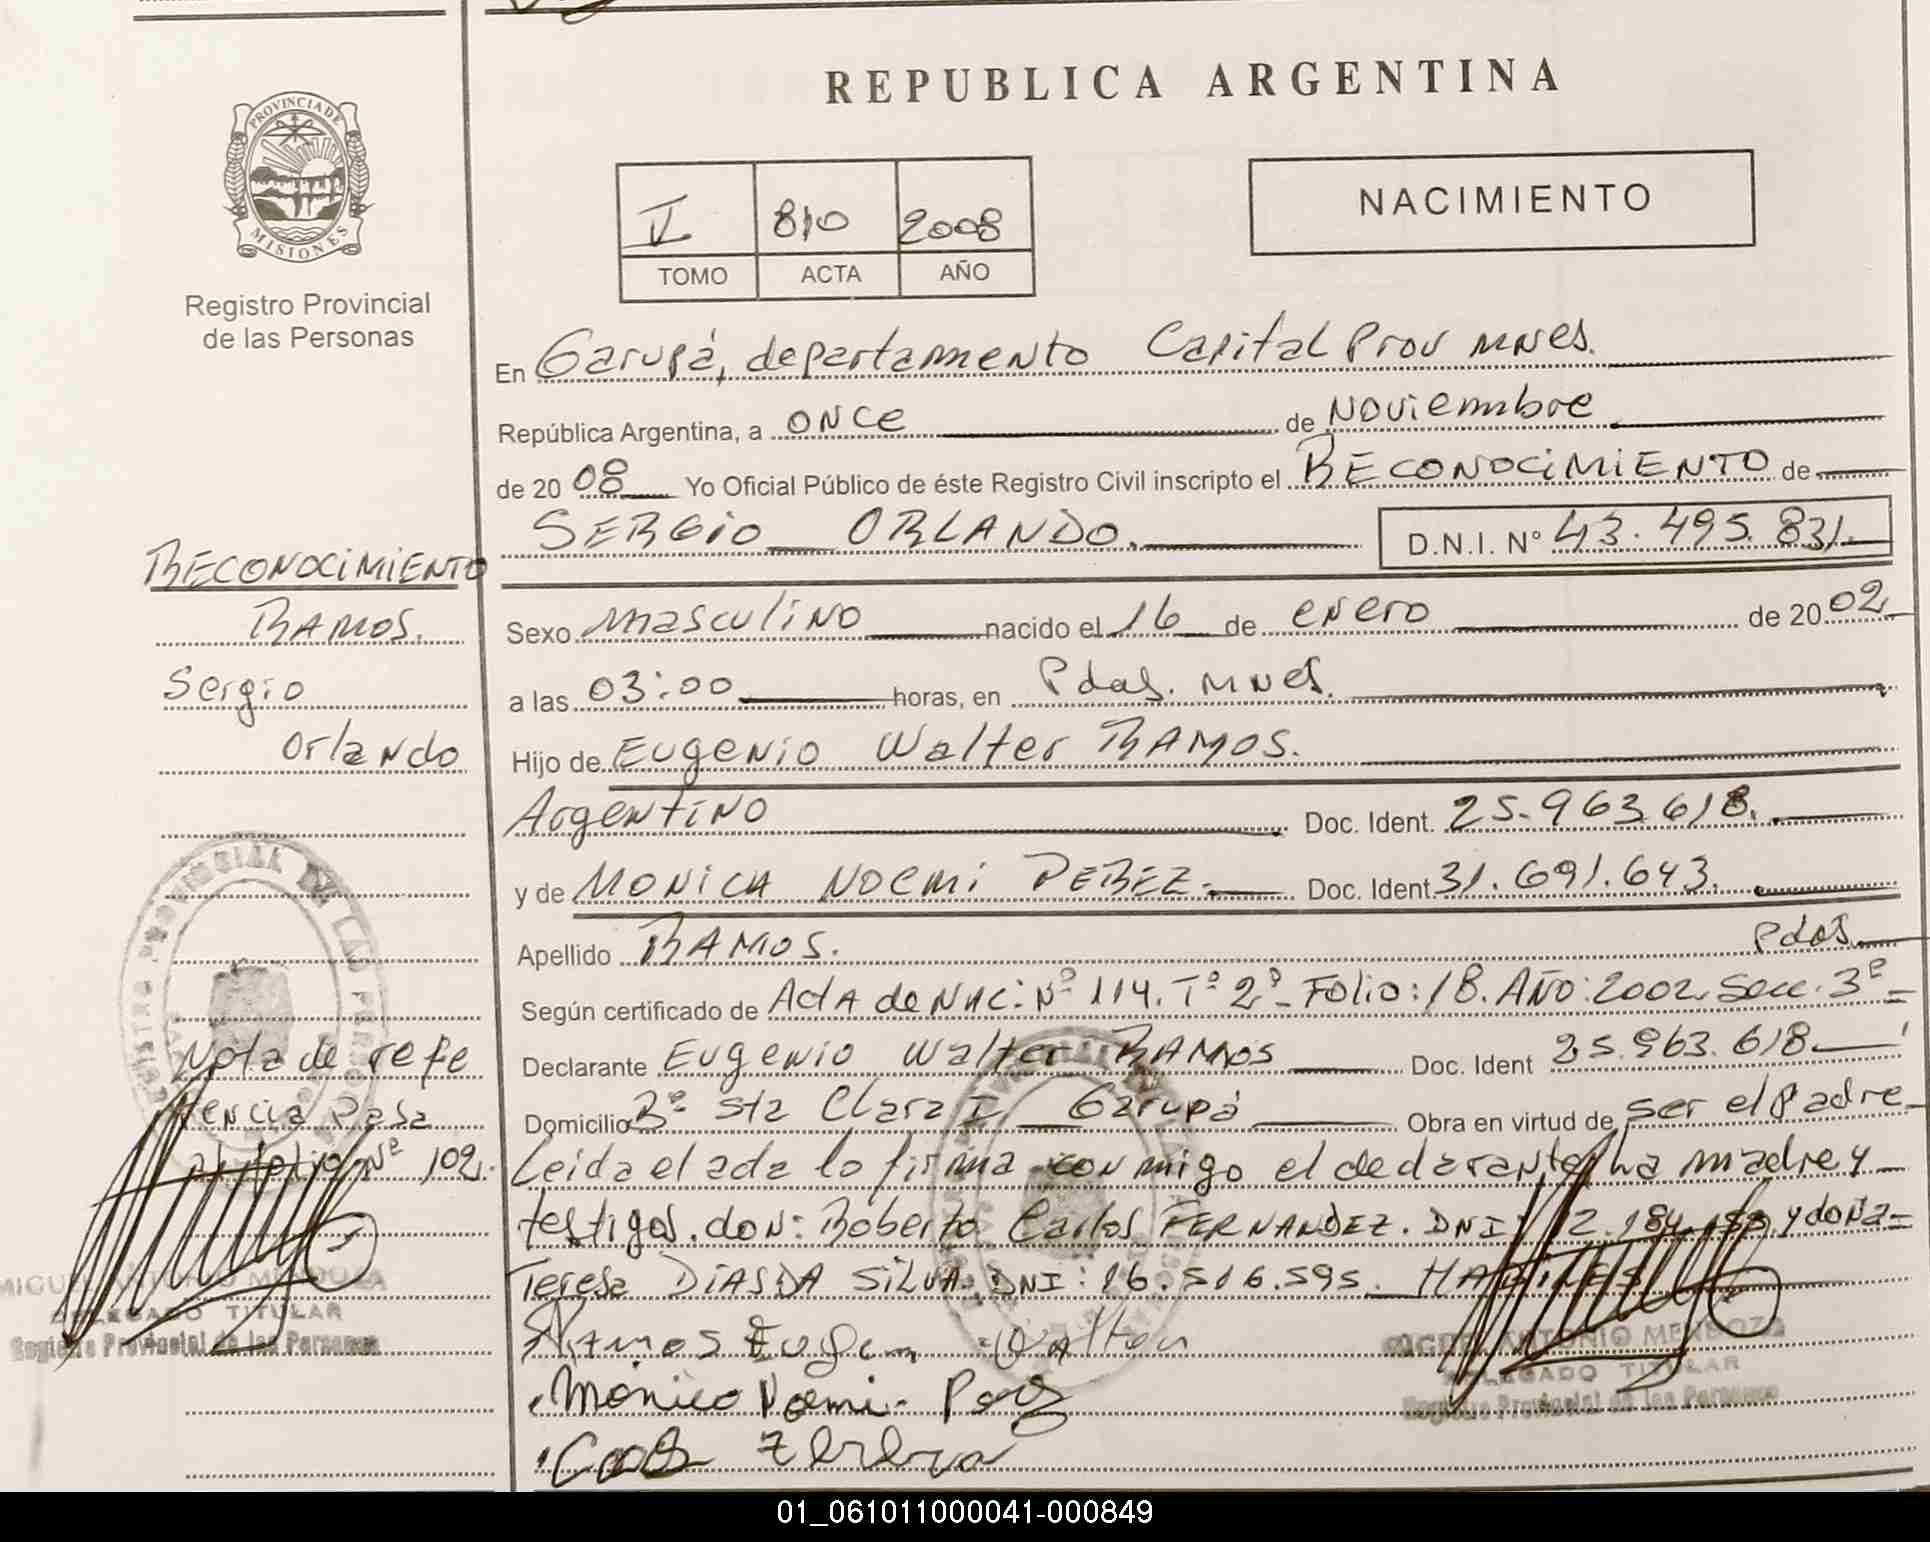 REPUBLICA ARGENTINA
PROVINCIA DE MISIONES
Registro Provincial
de las Personas
V 810 2008
TOMO ACTA AÑO
NACIMIENTO
En Garupá, departamento Capital Prov Mnes.
República Argentina, a once de Noviembre
de 2008 Yo Oficial Público de éste Registro Civil inscripto el RECONOCIMIENTO de
SERGIO ORLANDO. D.N.I. N° 43.495.831.
RECONOCIMIENTO
RAMOS.
Sergio
Orlando
Sexo Masculino nacido el 16 de enero de 2002
a las 03:00 horas, en Pdas. Mnes.
Hijo de Eugenio Walter RAMOS.
Argentino Doc. Ident. 25.963.618.
y de MONICA NOEMI PEREZ. Doc. Ident. 31.691.643.
Apellido RAMOS. Pdas
Según certificado de Acta de NAC: Nº 114. Tº 2º - Folio: 18. AÑO: 2002. Secc. 3ª
Declarante Eugenio Walter RAMOS Doc. Ident 25.963.618
Domicilio Bº Sta Clara I Garupá Obra en virtud de ser el Padre
Leida el acta lo firma conmigo el declarante, la madre y
testigos. don: Roberto Carlos FERNANDEZ. DNI: y doña
Teresa DIAS DA SILVA. DNI: 16.516.595.
Nota de refe
rencia Pasa
al folio Nº 102.
Ramos Eugen Walter
Monica Noemi
MIGUEL ANTONIO MENDOZA
DELEGADO TITULAR
Registro Provincial de las Personas
MIGUEL ANTONIO MENDOZA
DELEGADO TITULAR
Registro Provincial de las Personas
01_061011000041-000849